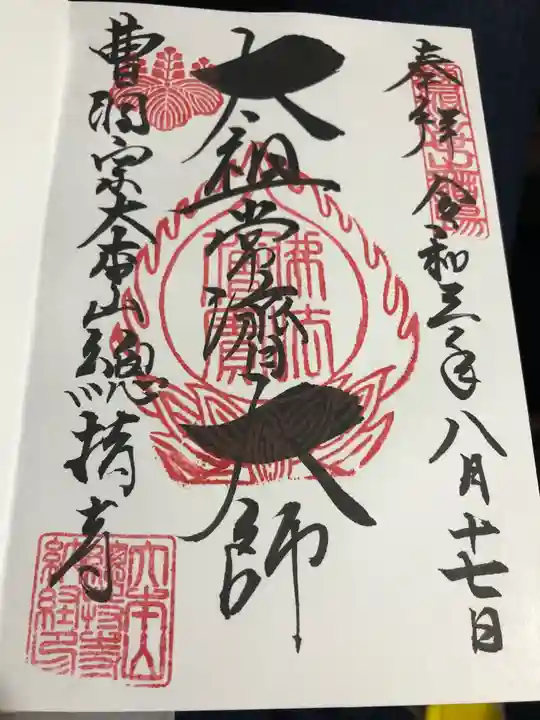 奉拝 令和三年八月十七日
太祖常濟大師
曹洞宗大本山總持寺
佛法僧寶
大本山
總持寺
納経印